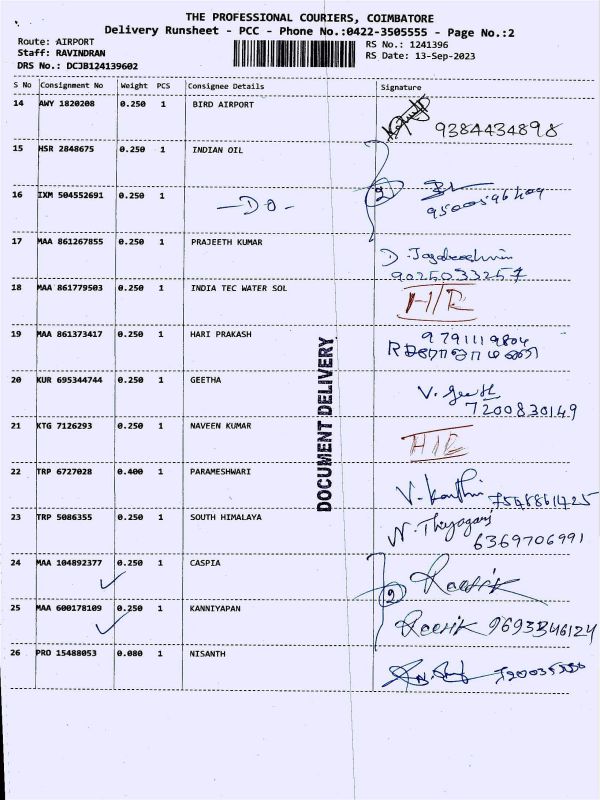 THE PROFESSIONAL COURIERS, COIMBATORE
Delivery Runsheet - PCC - Phone No.:0422-3505555 - Page No.:2
Route: AIRPORT
RS No.: 1241396
Staff: RAVINDRAN
RS Date: 13-Sep-2023
DRS No.: DCJB124139602
S No Consignment No Weight PCS Consignee Details Signature
14 AWY 1820208 0.250 1 BIRD AIRPORT
9384434898
15 HSR 2848675 0.250 1 INDIAN OIL
16 IXM 504552691 0.250 1
- DO - 2
9500596409
17 MAA 861267855 0.250 1 PRAJEETH KUMAR
9025033257
18 MAA 861779503 0.250 1 INDIA TEC WATER SOL
H/R
19 MAA 861373417 0.250 1 HARI PRAKASH
9791119804
20 KUR 695344744 0.250 1 GEETHA
V. Geeth
7200830149
21 KTG 7126293 0.250 1 NAVEEN KUMAR
22 TRP 6727028 0.400 1 PARAMESHWARI
V. Kanthi
23 TRP 5086355 0.250 1 SOUTH HIMALAYA
N. Thyagaraj
6369706991
24 MAA 104892377 0.250 1 CASPIA
2
25 MAA 600178109 0.250 1 KANNIYAPAN
26 PRO 15488053 0.080 1 NISANTH
DOCUMENT DELIVERY